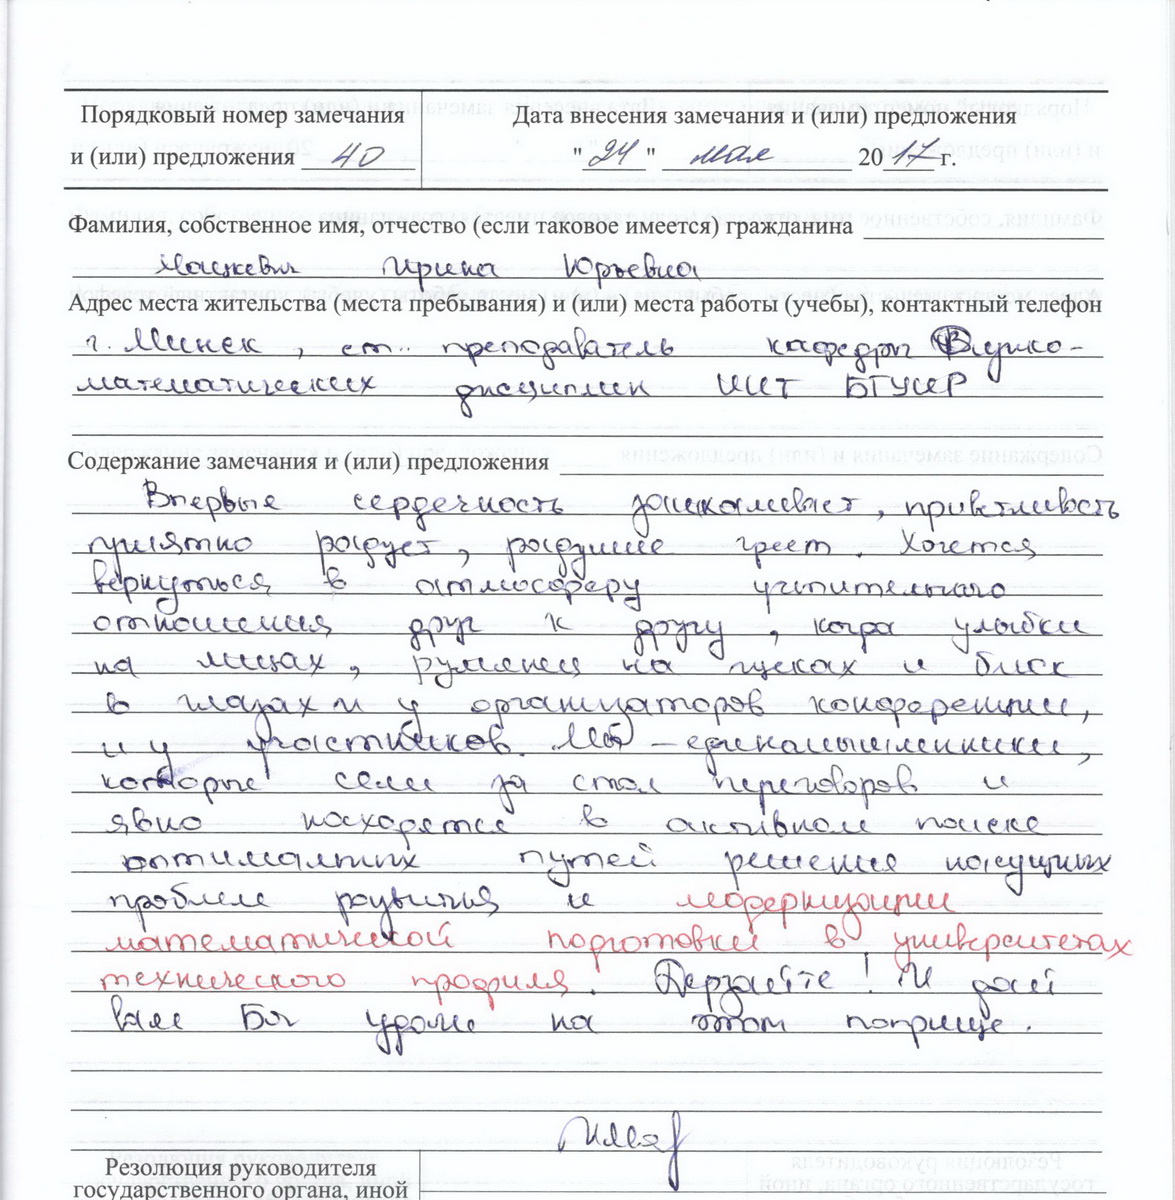 Порядковый номер замечания
и (или) предложения 40
Дата внесения замечания и (или) предложения
"24" мая 2017 г.
Фамилия, собственное имя, отчество (если таковое имеется) гражданина
Мацкевич Ирина Юрьевна
Адрес места жительства (места пребывания) и (или) места работы (учебы), контактный телефон
г. Минск, ст. преподаватель кафедры Физико-
математических дисциплин ИИТ БГУИР
Содержание замечания и (или) предложения
Впервые сердечность зашкаливает, приветливость
приятно радует, радушие греет. Хочется
вернуться в атмосферу учтительного
отношения друг к другу, когда улыбки
на лицах, румянец на щеках и блеск
в глазах и у организаторов конференции,
и у участников. Мы – единомышленники,
которые сели за стол переговоров и
явно находятся в активном поиске
оптимальных путей решения насущных
проблем развития и модернизации
математической подготовки в университетах
технического профиля. Дерзайте! И дай
вам Бог удачи на этом поприще.
Резолюция руководителя
государственного органа, иной